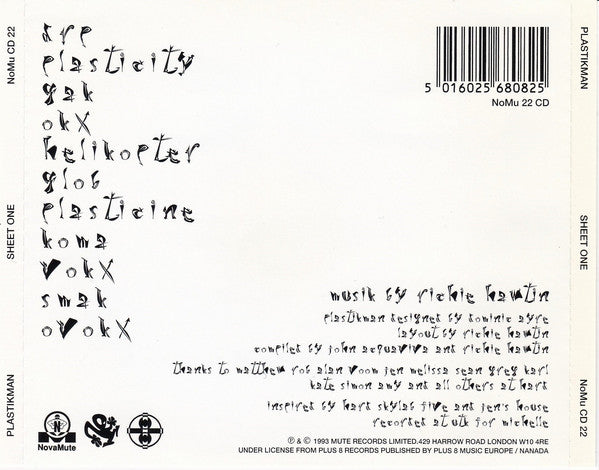 NoMu CD 22
SHEET ONE
PLASTIKMAN
drp
plasticity
gak
okx
helikopter
glob
plasticine
koma
vokx
smak
ovokx
5 016025 680825
NoMu 22 CD
musik by richie hawtin
plastikman designed by dominic ayre
layout by richie hawtin
compiled by john acquaviva and richie hawtin
thanks to matthew rob alan voom jen melissa sean greg karl
kate simon amy and all others at hard
inspired by hard skylab five and jen's house
recorded at utk for michelle
N
NovaMute
℗ & © 1993 MUTE RECORDS LIMITED.429 HARROW ROAD LONDON W10 4RE
UNDER LICENSE FROM PLUS 8 RECORDS PUBLISHED BY PLUS 8 MUSIC EUROPE / NANADA
PLASTIKMAN
SHEET ONE
NoMu CD 22